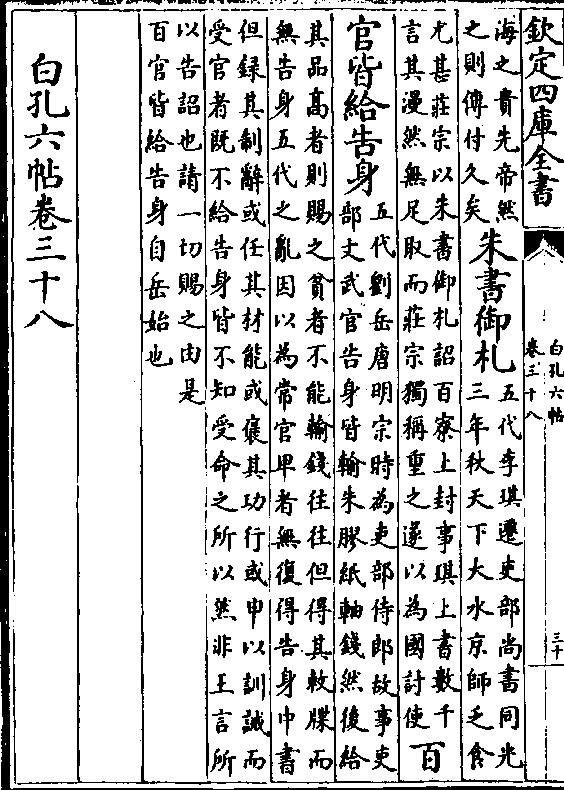 欽定四庫全書
白孔六帖
卷三十八
三十
海之貴先帝然
之則傳付久矣
朱書御札
五代李琪遷吏部尚書同光
三年秋天下大水京師乏食
尤甚莊宗以朱書御札詔百寮上封事琪上書數千
言其漫然無足取而莊宗獨稱重之遂以為國討使
百
官皆給告身
五代劉岳唐明宗時為吏部侍郎故事吏
部文武官告身皆輸朱膠紙軸錢然後給
其品高者則賜之貧者不能輸錢往往但得其敕牒而
無告身五代之亂因以為常官卑者無復得告身中書
但録其制辭或任其材能或褒其功行或申以訓誡而
受官者既不給告身皆不知受命之所以然非王言所
以告詔也請一切賜之由是
百官皆給告身自岳始也
白孔六帖卷三十八